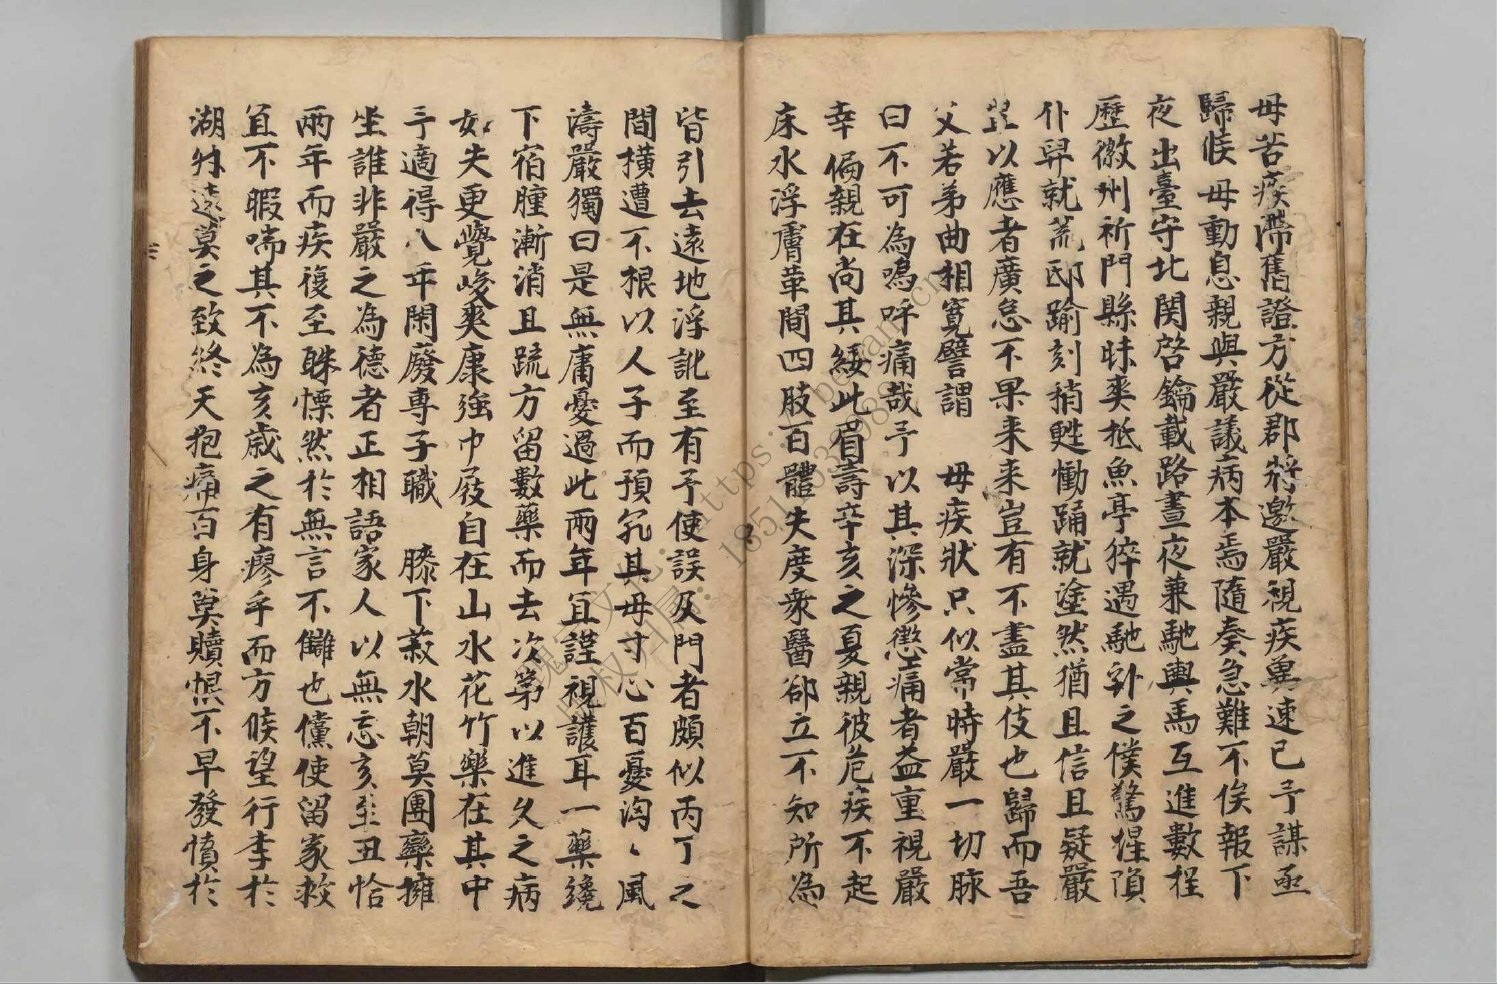 母苦疾滯舊證方從郡將邀嚴視疾冀速已予謀亟
歸候母動息親與嚴議病本焉隨奏急難不俟報下
夜出臺守北関啓鑰載路晝夜兼馳輿馬互進數程
歷徽州祈門縣昧爽抵魚亭猝遇馳訃之僕驚惶隕
仆舁就荒邸踰刻稍甦慟踊就塗然猶且信且疑嚴
以應者廣怠不果来来豈有不盡其伎也歸而吾
父若弟曲相寬譬謂 母疾狀只似常時嚴一切脉
曰不可為嗚呼痛哉予以其深慘懲痛者益重視嚴
幸偏親在尚其綏此眉壽辛亥之夏親彼危疾不起
床水浮膚革間四肢百體失度衆醫郤立不知所為
皆引去遠地浮訛至有予使誤及門者頗似丙丁之
間橫遭不根以人子而預其母寸心百憂洶〻風
濤嚴獨曰是無庸憂過此兩年宜謹視護耳一藥纔
下宿腫漸消且䟽方留數藥而去次第以進久之病
如失更覺峻爽康強巾屐自在山水花竹樂在其中
予適得八年閑廢專子職 膝下菽水朝莫團欒擁
坐誰非嚴之為德者正相語家人以無忘亥至丑恰
兩年而疾復至聮慄然於無言不讎也儻使留家救
宜不暇喘其不為亥歲之有瘳乎而方候望行李於
湖外遠莫之致終天抱痛百身莫贖恨不早發憤於